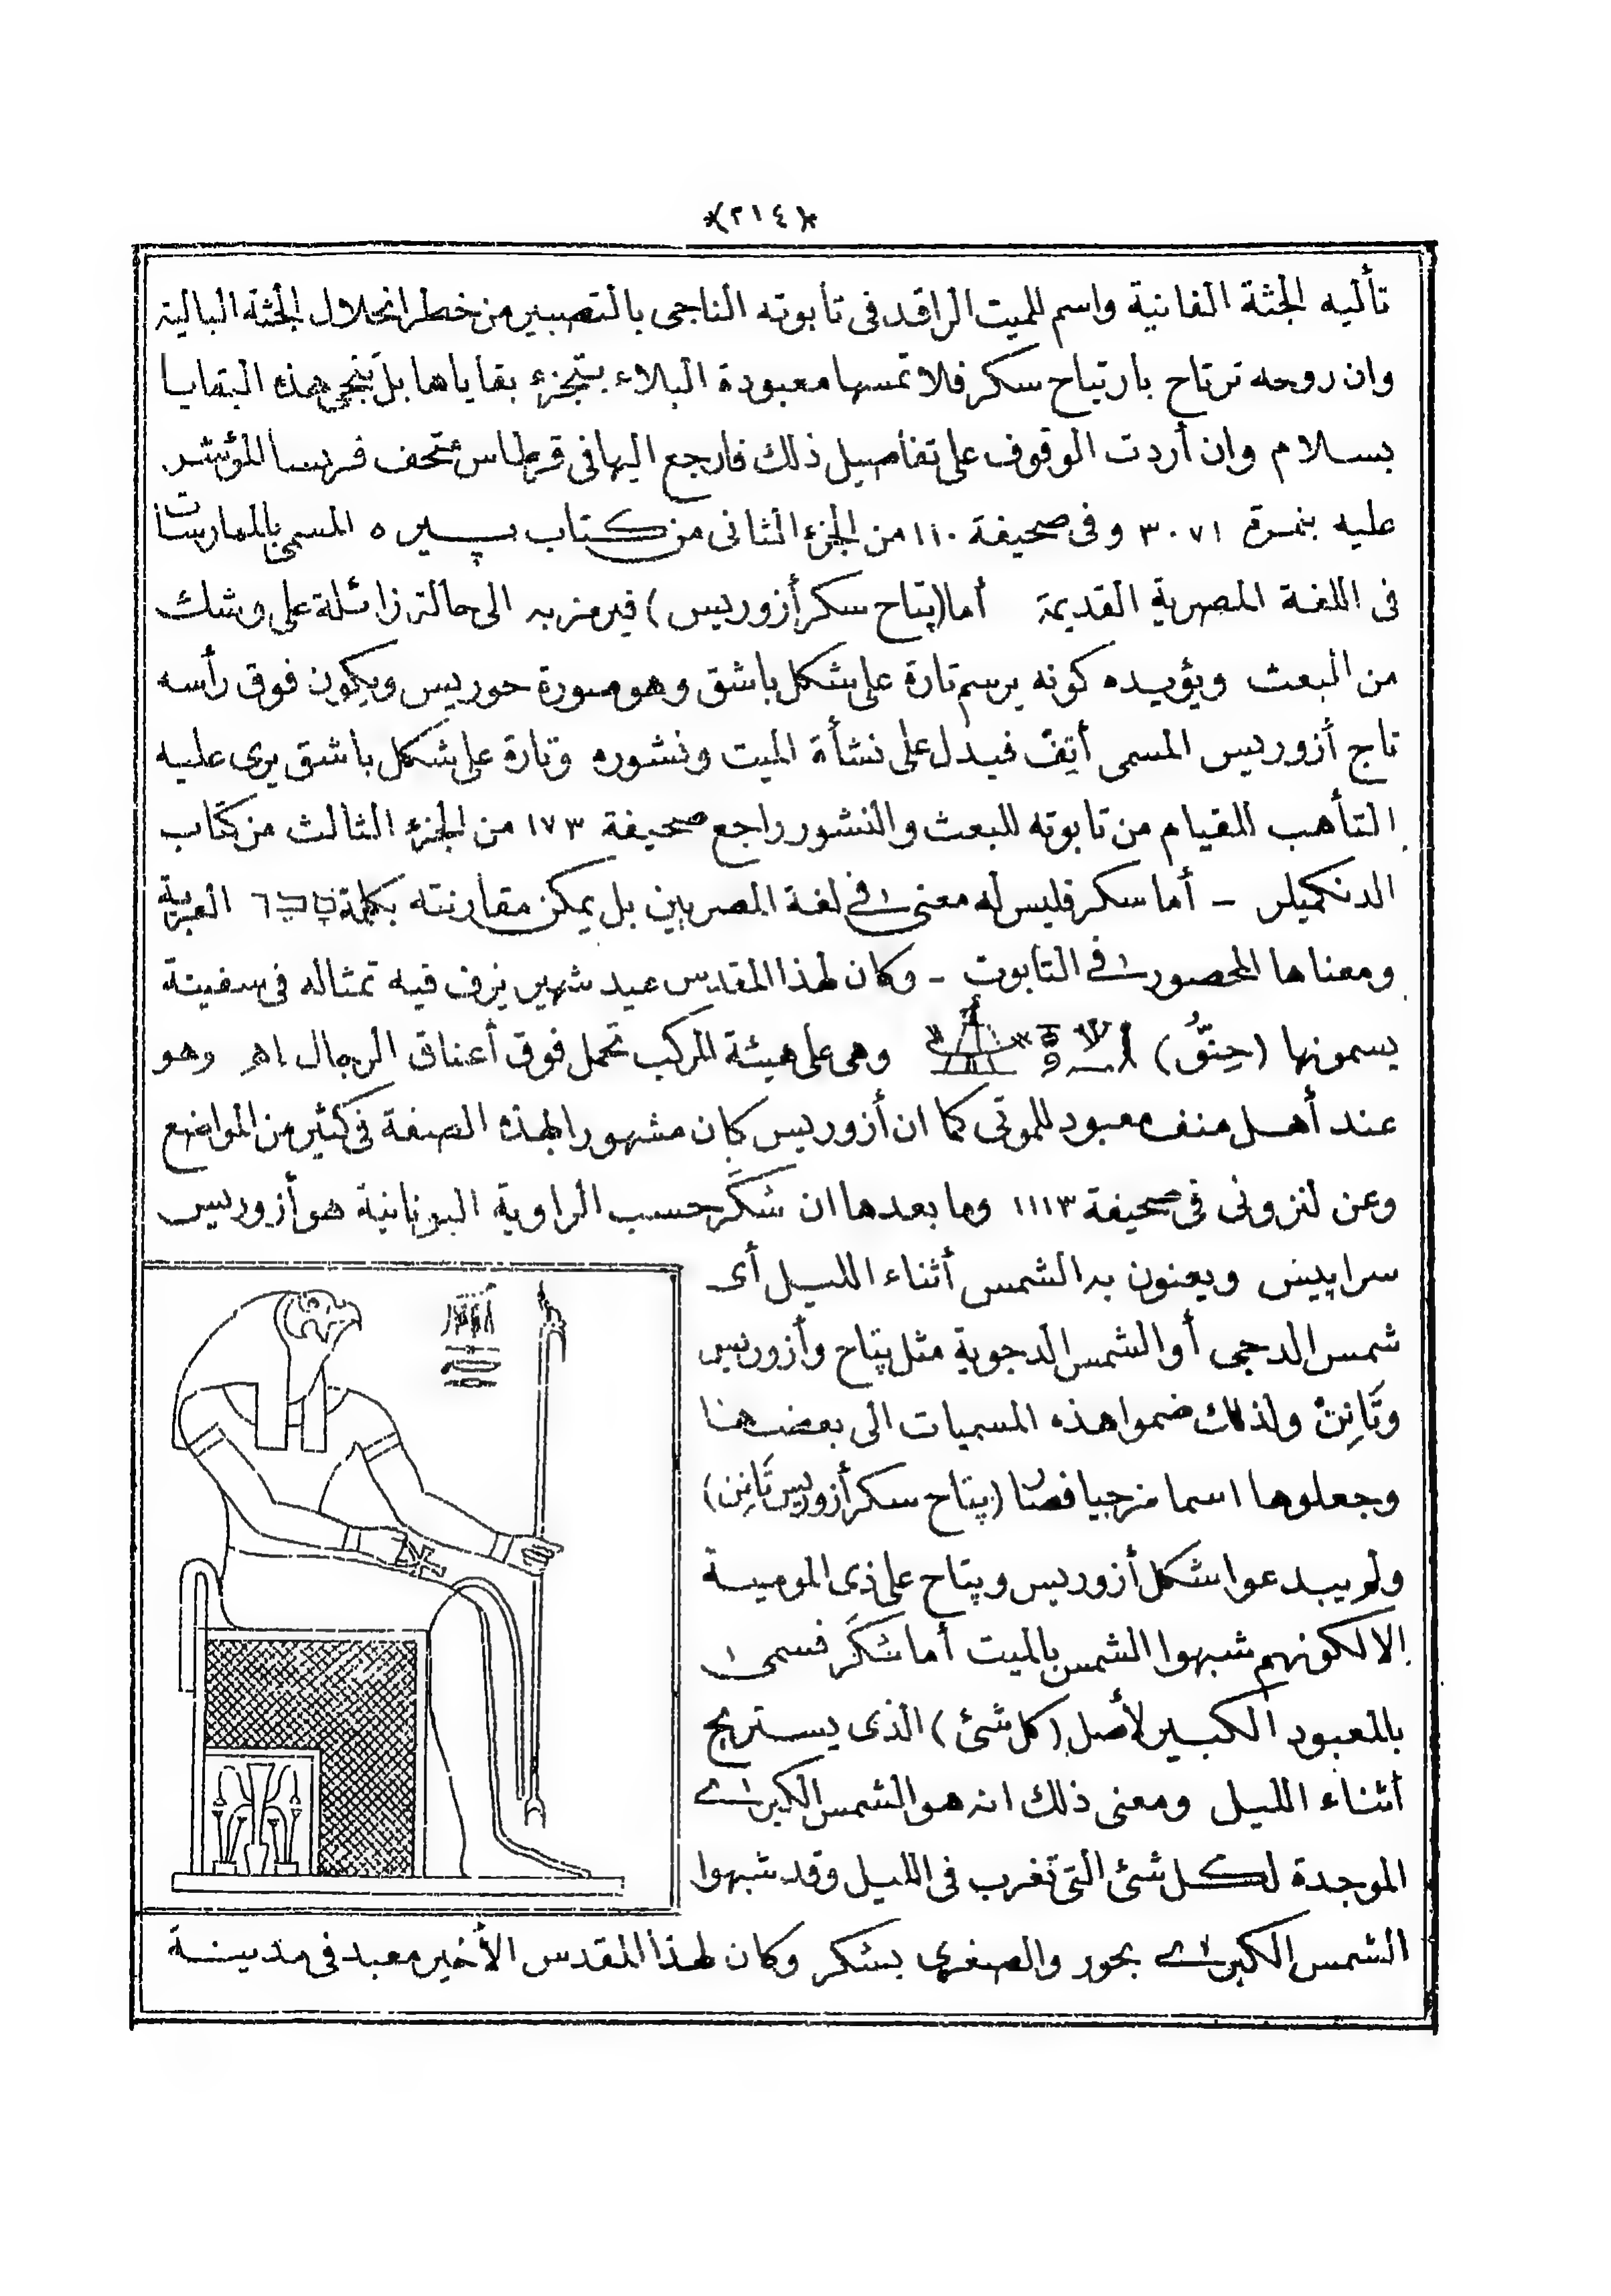 *(٢١٤)*
تأليه الجثة الفانية واسم للميت الراقد فى تابوته الناجى بالتصبير من خطر انحلال الجثة البالية
وان روحه ترتاح بارتياح سكر فلا تمسها معبودة البلاء بتجزء بقاياها بل تنجى هذه البقايا
بسلام وان أردت الوقوف على تفاصيل ذلك فارجع اليها فى قرطاس متحف فرنسا المؤشر
عليه بنمرة ٣٠٧١ وفى صحيفة ١١٠ من الجزء الثانى من كتاب بييره المسمى بالممارسات
فى اللغة المصرية القديمة أما (پتاح سكر أزوريس) فيرمز به الى حالة زائلة على وشك
من البعث ويؤيده كونه يرسم تارة على شكل باشق وهو صورة حوريس ويكون فوق رأسه
تاج أزوريس المسمى أتِفْ فيدل على نشأة الميت ونشوره وتارة على شكل باشق يرى عليه
التأهب للقيام من تابوته للبعث والنشور راجع صحيفة ١٧٣ من الجزء الثالث من كتاب
الدنكميلر - أما سكر فليس له معنى فى لغة المصريين بل يمكن مقارنته بكلمة العبرية
ومعناها المحصور فى التابوت - وكان لهذا المقدس عيد شهير يزف فيه تمثاله فى سفينة
يسمونها (حِنُّو) وهى على هيئة المركب تحمل فوق أعناق الرجال اهـ وهو
عند أهل منف معبود للموتى كما ان أزوريس كان مشهورا بهذه الصفة فى كثير من المواضع
وعن لنزونى فى صحيفة ١١١٣ وما بعدها ان سَكَر حسب الراوية اليونانية هو أزوريس
سراپيس ويعنون به الشمس أثناء الليل أى
شمس الدجى أو الشمس الدجوية مثل پتاح وأزوريس
وتَانِنْ ولذلك ضموا هذه المسميات الى بعضها
وجعلوها اسما مزجيا فصار (پتاح سكر أزوريس تَانِن)
ولم يبدعوا شكل أزوريس وپتاح على زى المومية
الا لكونهم شبهوا الشمس بالميت أما سَكَر فسمى
بالمعبود الكبير لأصل (كل شئ) الذى يستريح
أثناء الليل ومعنى ذلك انه هو الشمس الكبرى
الموجدة لكل شئ التى تغرب فى الليل وقد شبهوا
الشمس الكبرى بحور والصغرى بسكر وكان لهذا المقدس الأخير معبد فى مدينة